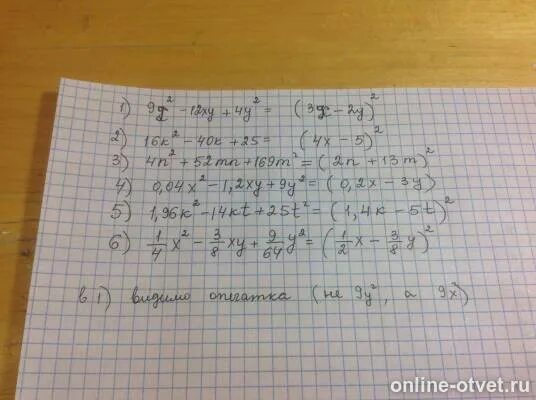 1) 9x² - 12xy + 4y² = (3x - 2y)²
2) 16к² - 40к + 25 = (4x - 5)²
3) 4n² + 52mn + 169m² = (2n + 13m)²
4) 0,04x² - 1,2xy + 9y² = (0,2x - 3y)
5) 1,96к² - 14кt + 25t² = (1,4к - 5t)²
6) 1/4 x² - 3/8 xy + 9/64 y² = (1/2 x - 3/8 y)²
в 1) видимо опечатка (не 9y², а 9x²)
online-otvet.ru